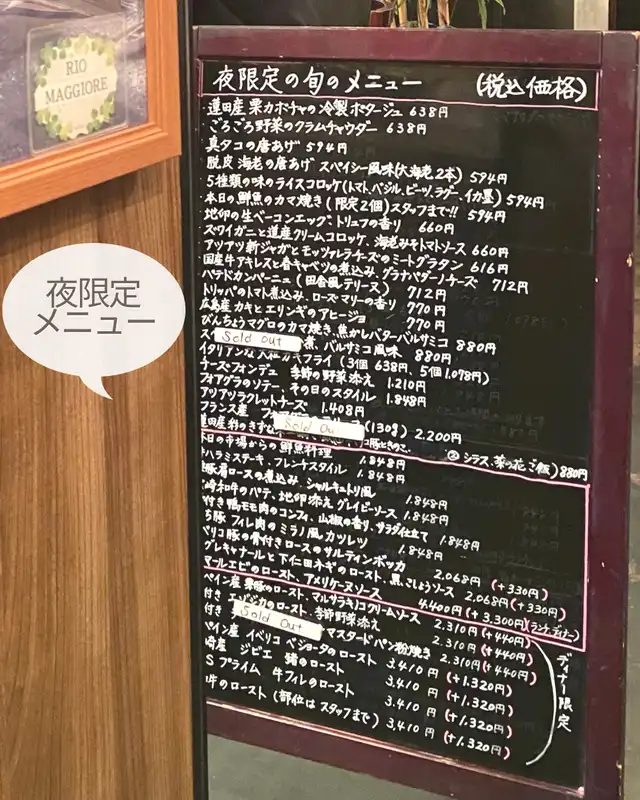 RIO
MAGGIORE
夜限定
メニュー
夜限定の旬のメニュー (税込価格)
蓮田産 栗カボチャの冷製ポタージュ 638円
ごろごろ野菜のクラムチャウダー 638円
真タコの唐あげ 594円
脱皮海老の唐あげ スパイシー風味(大海老2本) 594円
5種類の味のライスコロッケ(トマト、バジル、ビーツ、ラグー、イカ墨) 594円
本日の鮮魚のカマ焼き(限定2個)スタッフまで!! 594円
地卵の生ベーコンエッグ、トリュフの香り 660円
ズワイガニと道産クリームコロッケ、海老みそトマトソース 660円
アツアツ新ジャガとモッツァレラチーズのミートグラタン 616円
国産牛アキレスと春キャベツの煮込み、グラナパダーノチーズ 712円
パテドカンパーニュ(田舎風テリーヌ) 712円
トリッパのトマト煮込み、ローズマリーの香り 770円
広島産 カキとエリンギのアヒージョ 770円
びんちょうマグロのカマ焼き、焦がしバターバルサミコ 880円
Sold out 煮、バルサミコ風味 880円
イタリアンな大粒カキフライ(3個 638円、5個 1,078円)
チーズフォンデュ 季節の野菜添え 1.210円
フォアグラのソテー、その日のスタイル 1.848円
アツアツラクレットチーズ 1.408円
フランス産 Sold Ou (130g) 2.200円
② シラス、菜の花ご飯) 880円
本日の市場からの鮮魚料理 1.848円
牛ハラミステーキ、フレンチスタイル 1.848円
豚肩ロースの煮込み、シャルキュトリ風 1.848円
崎和牛のパテ、地卵添え グレイビーソース 1.848円
付き鴨モモ肉のコンフィ、山椒の香り、サラダ仕立て 1.848円
豚フィレ肉のミラノ風カツレツ 1.848円
ベリコ豚の骨付きロースのサルティンボッカ 2.068円 (+330円)
グレキャナールと下仁田ネギのロースト、黒こしょうソース 2.068円 (+330円)
マールエビのロースト、アメリケーヌソース 4.400円 (+3.300円)(ランチ、ディナー)
ペイン産 栗豚のロースト、マルサラきのこクリームソース 2.310円 (+440円)
付き エゾジカのロースト、季節野菜添え 2.310円 (+440円)
付き Sold Out マスタードパン粉焼き 2.310円 (+440円)
ペイン産 イベリコ ベジョータのロースト 3.410円 (+1.320円)
崎産 ジビエ 猪のロースト 3.410円 (+1.320円)
S プライム 牛フィレのロースト 3.410円 (+1.320円)
牛のロースト(部位はスタッフまで) 3,410円 (+1.320円)
ディナー限定